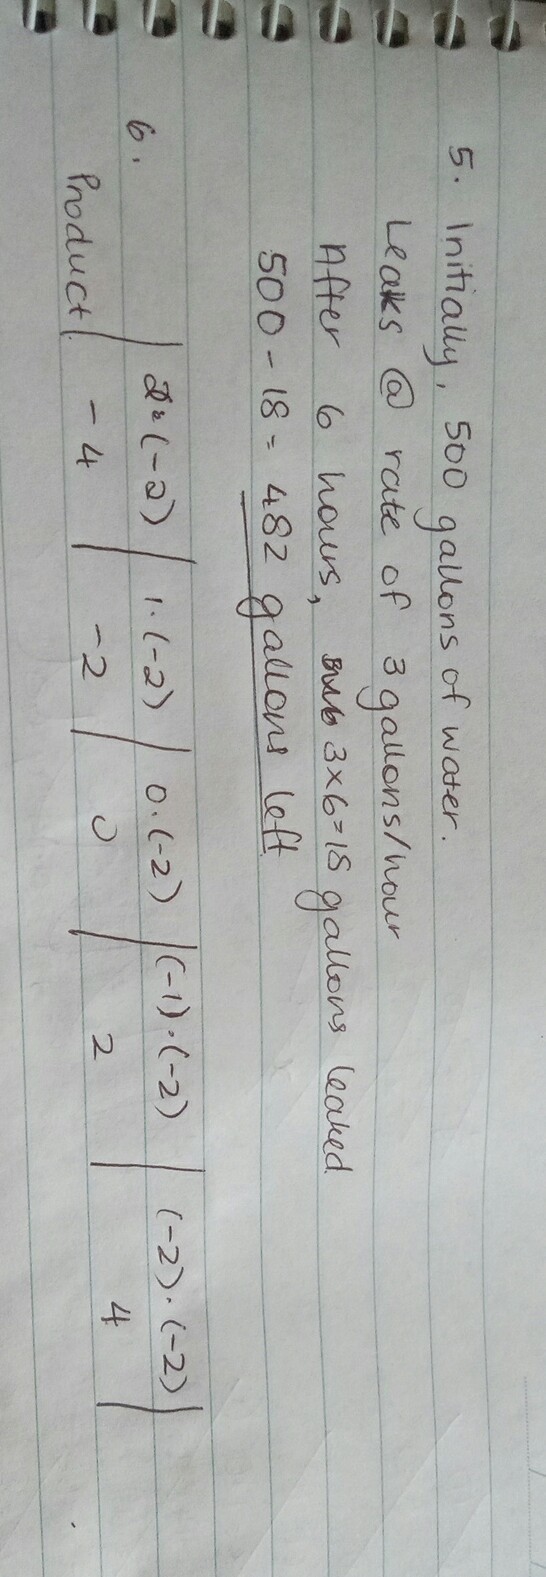 5. Initially, 500 gallons of water.
Leaks @ rate of 3 gallons/hour
After 6 hours, 3x6=18 gallons leaked
500 - 18 = 482 gallons left
6. 2·(-2) | 1·(-2) | 0·(-2) | (-1)·(-2) | (-2)·(-2)
Product | -4 | -2 | 0 | 2 | 4